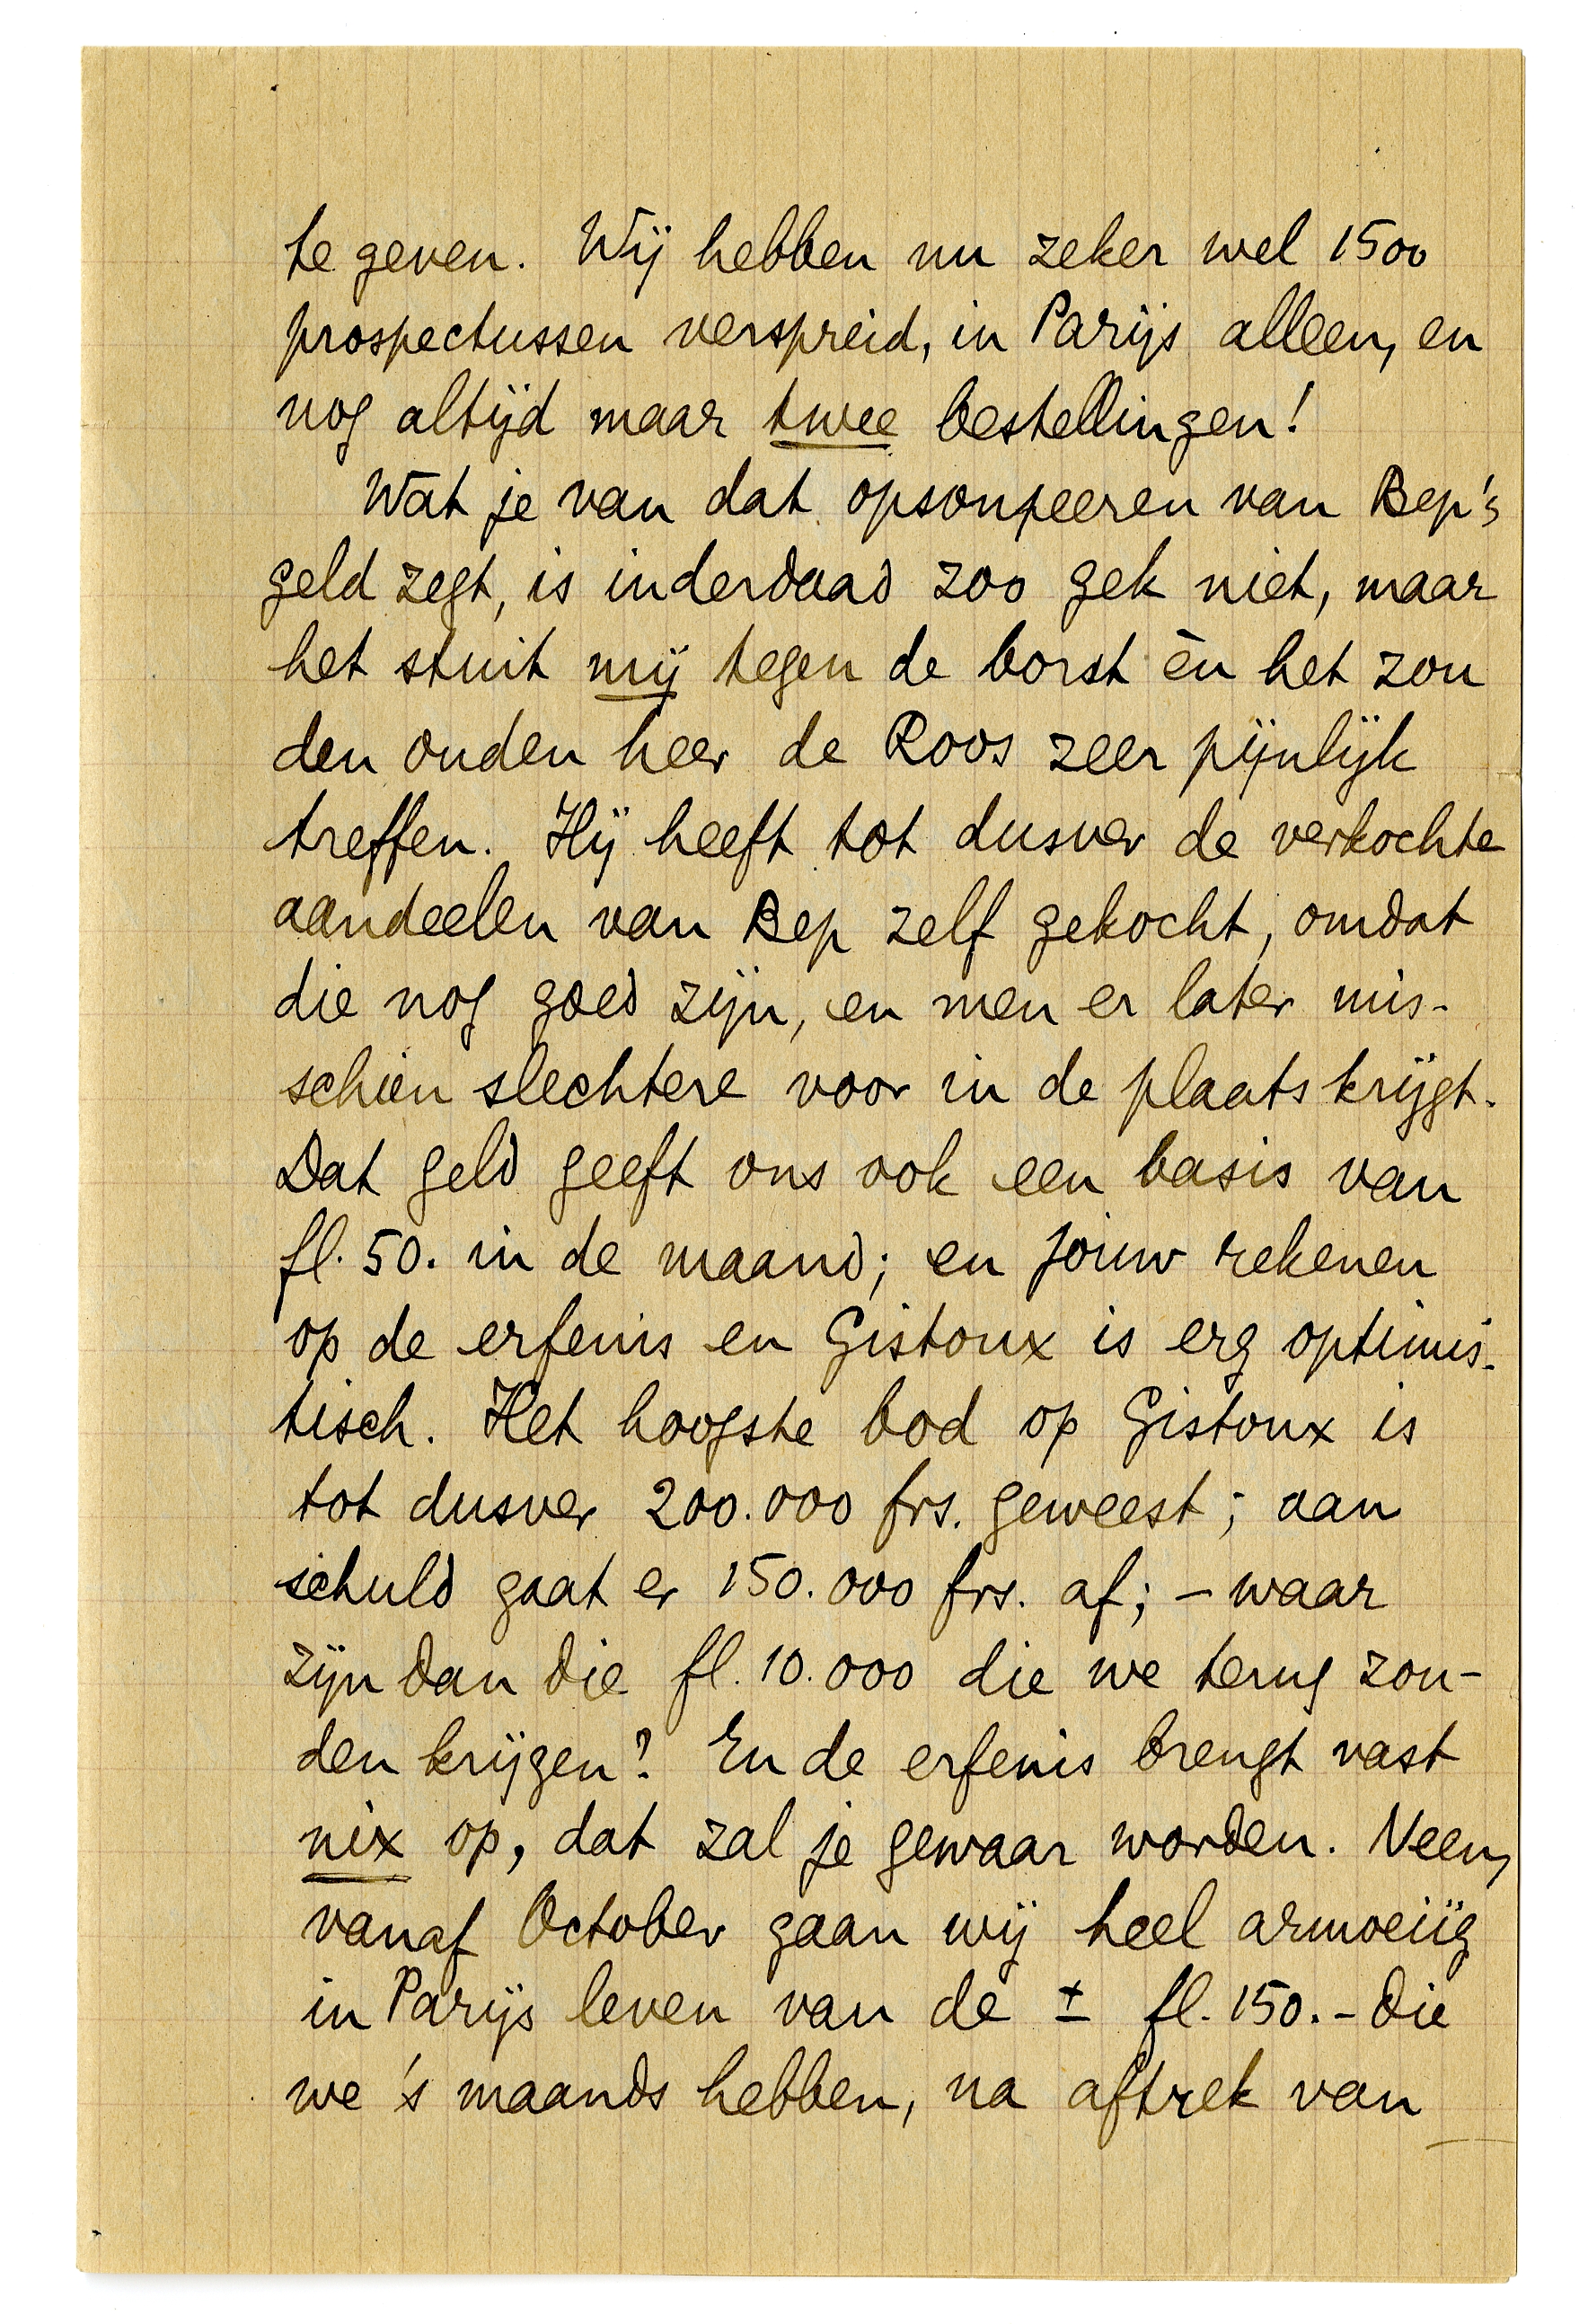 te geven. Wij hebben nu zeker wel 1500
prospectussen verspreid, in Parijs alleen, en
nog altijd maar twee bestellingen!
Wat je van dat opsoupeeren van Bep's
geld zegt, is inderdaad zoo gek niet, maar
het stuit mij tegen de borst èn het zou
den ouden heer de Roos zeer pijnlijk
treffen. Hij heeft tot dusver de verkochte
aandeelen van Bep zelf gekocht, omdat
die nog goed zijn, en men er later mis-
schien slechtere voor in de plaats krijgt.
Dat geld geeft ons ook een basis van
fl. 50. in de maand; en jouw rekenen
op de erfenis en Gistoux is erg optimis-
tisch. Het hoogste bod op Gistoux is
tot dusver 200.000 frs. geweest; aan
schuld gaat er 150.000 frs. af; – waar
zijn dan die fl. 10.000 die we terug zou-
den krijgen? En de erfenis brengt vast
nix op, dat zal je gewaar worden. Neen,
vanaf October gaan wij heel armoeiïg
in Parijs leven van de ± fl. 150.- die
we 's maands hebben, na aftrek van